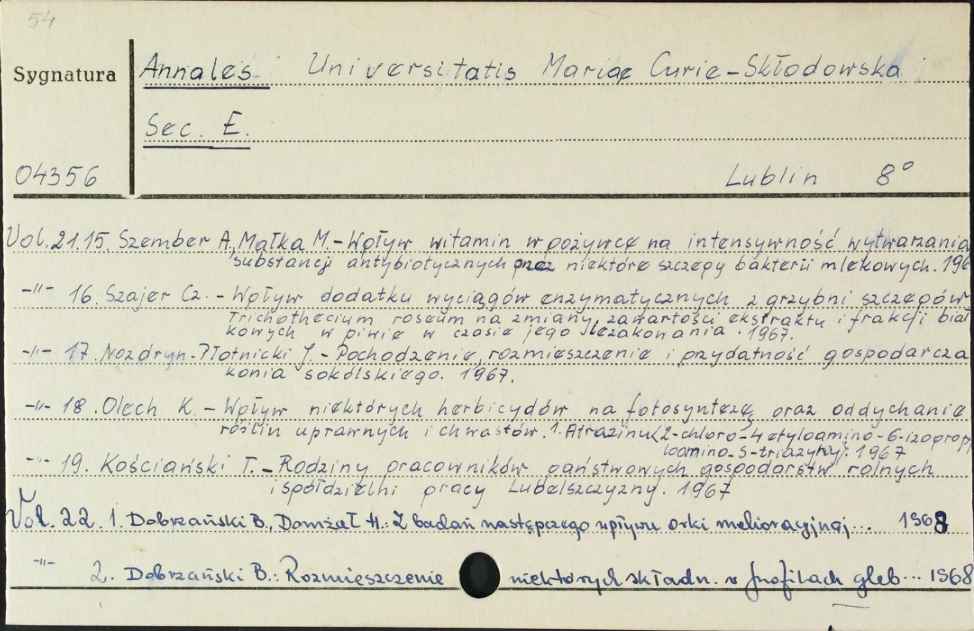 54
Sygnatura
Annales Universitatis Mariae Curie-Skłodowska
Sec. E.
04356
Lublin 8°
Vol. 21.15. Szember A., Małka M. - Wpływ witamin w pożywce na intensywność wytwarzania
substancji antybiotycznych przez niektóre szczepy bakterii mlekowych. 196
-"- 16. Szajer Cz. - Wpływ dodatku wyciągów enzymatycznych z grzybni szczepów
Trichothecium roseum na zmiany zawartości ekstraktu i frakcji biał
kowych w piwie w czasie jego leżakowania. 1967.
-"- 17. Nozdryn-Płotnicki J. - Pochodzenie, rozmieszczenie i przydatność gospodarcza
konia sokólskiego. 1967.
-"- 18. Olech K. - Wpływ niektórych herbicydów na fotosyntezę oraz oddychanie
roślin uprawnych i chwastów. 1. Atrazinu (2-chloro-4 etyloamino-6-izoprop
loamino-s-triazyny). 1967
-"- 19. Kościański T. - Rodziny pracowników państwowych gospodarstw rolnych
i spółdzielni pracy Lubelszczyzny. 1967
Vol. 22. 1. Dobrzański B., Domżał H.: Z badań następczego wpływu orki melioracyjnej... 1968
-"- 2. Dobrzański B.: Rozmieszczenie niektórych składn. w profilach gleb... 1968